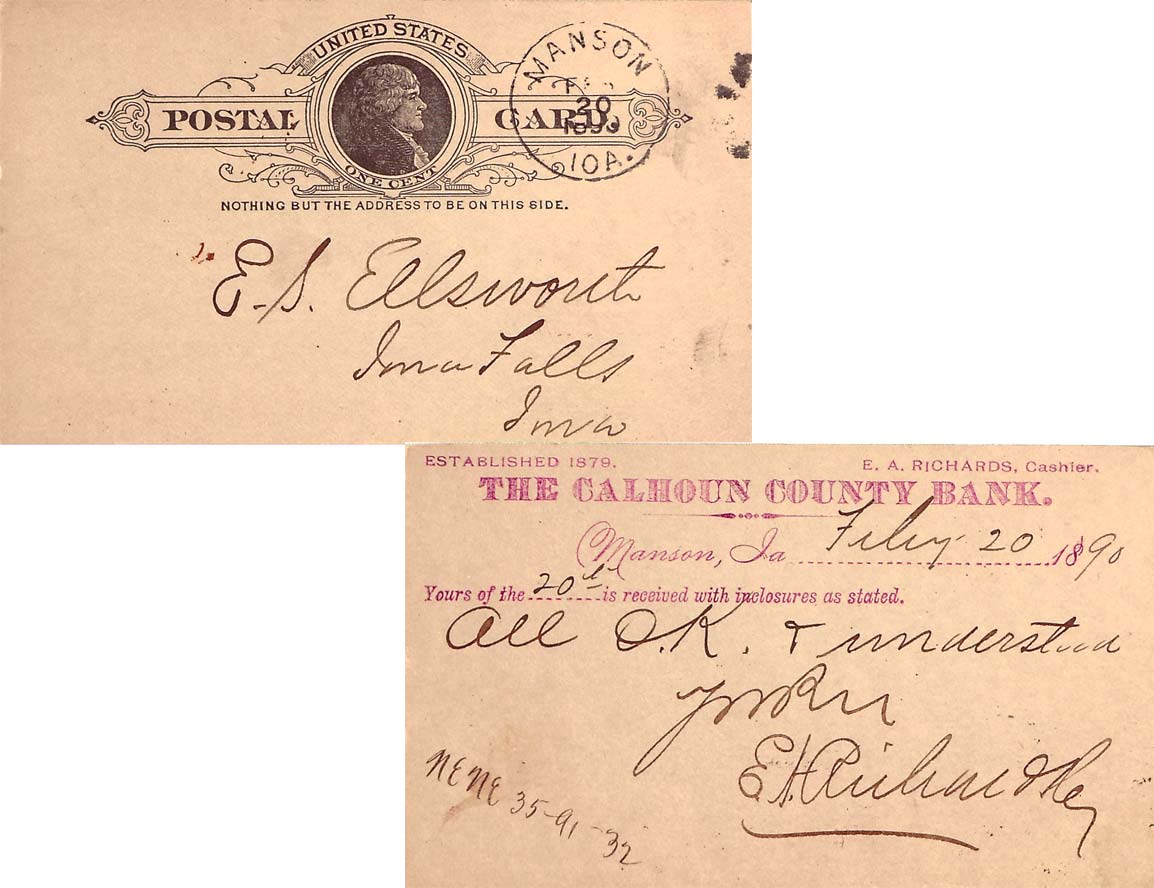 UNITED STATES
POSTAL CARD.
ONE CENT
NOTHING BUT THE ADDRESS TO BE ON THIS SIDE.
MANSON
20
IOA.
E. S. Ellsworth
Iowa Falls
Iowa
ESTABLISHED 1879.
E. A. RICHARDS, Cashier.
THE CALHOUN COUNTY BANK.
Manson, Ia Feby 20 1890
Yours of the 20th is received with inclosures as stated.
All O.K. & understood
E A Richards
NE NE 35-91-32